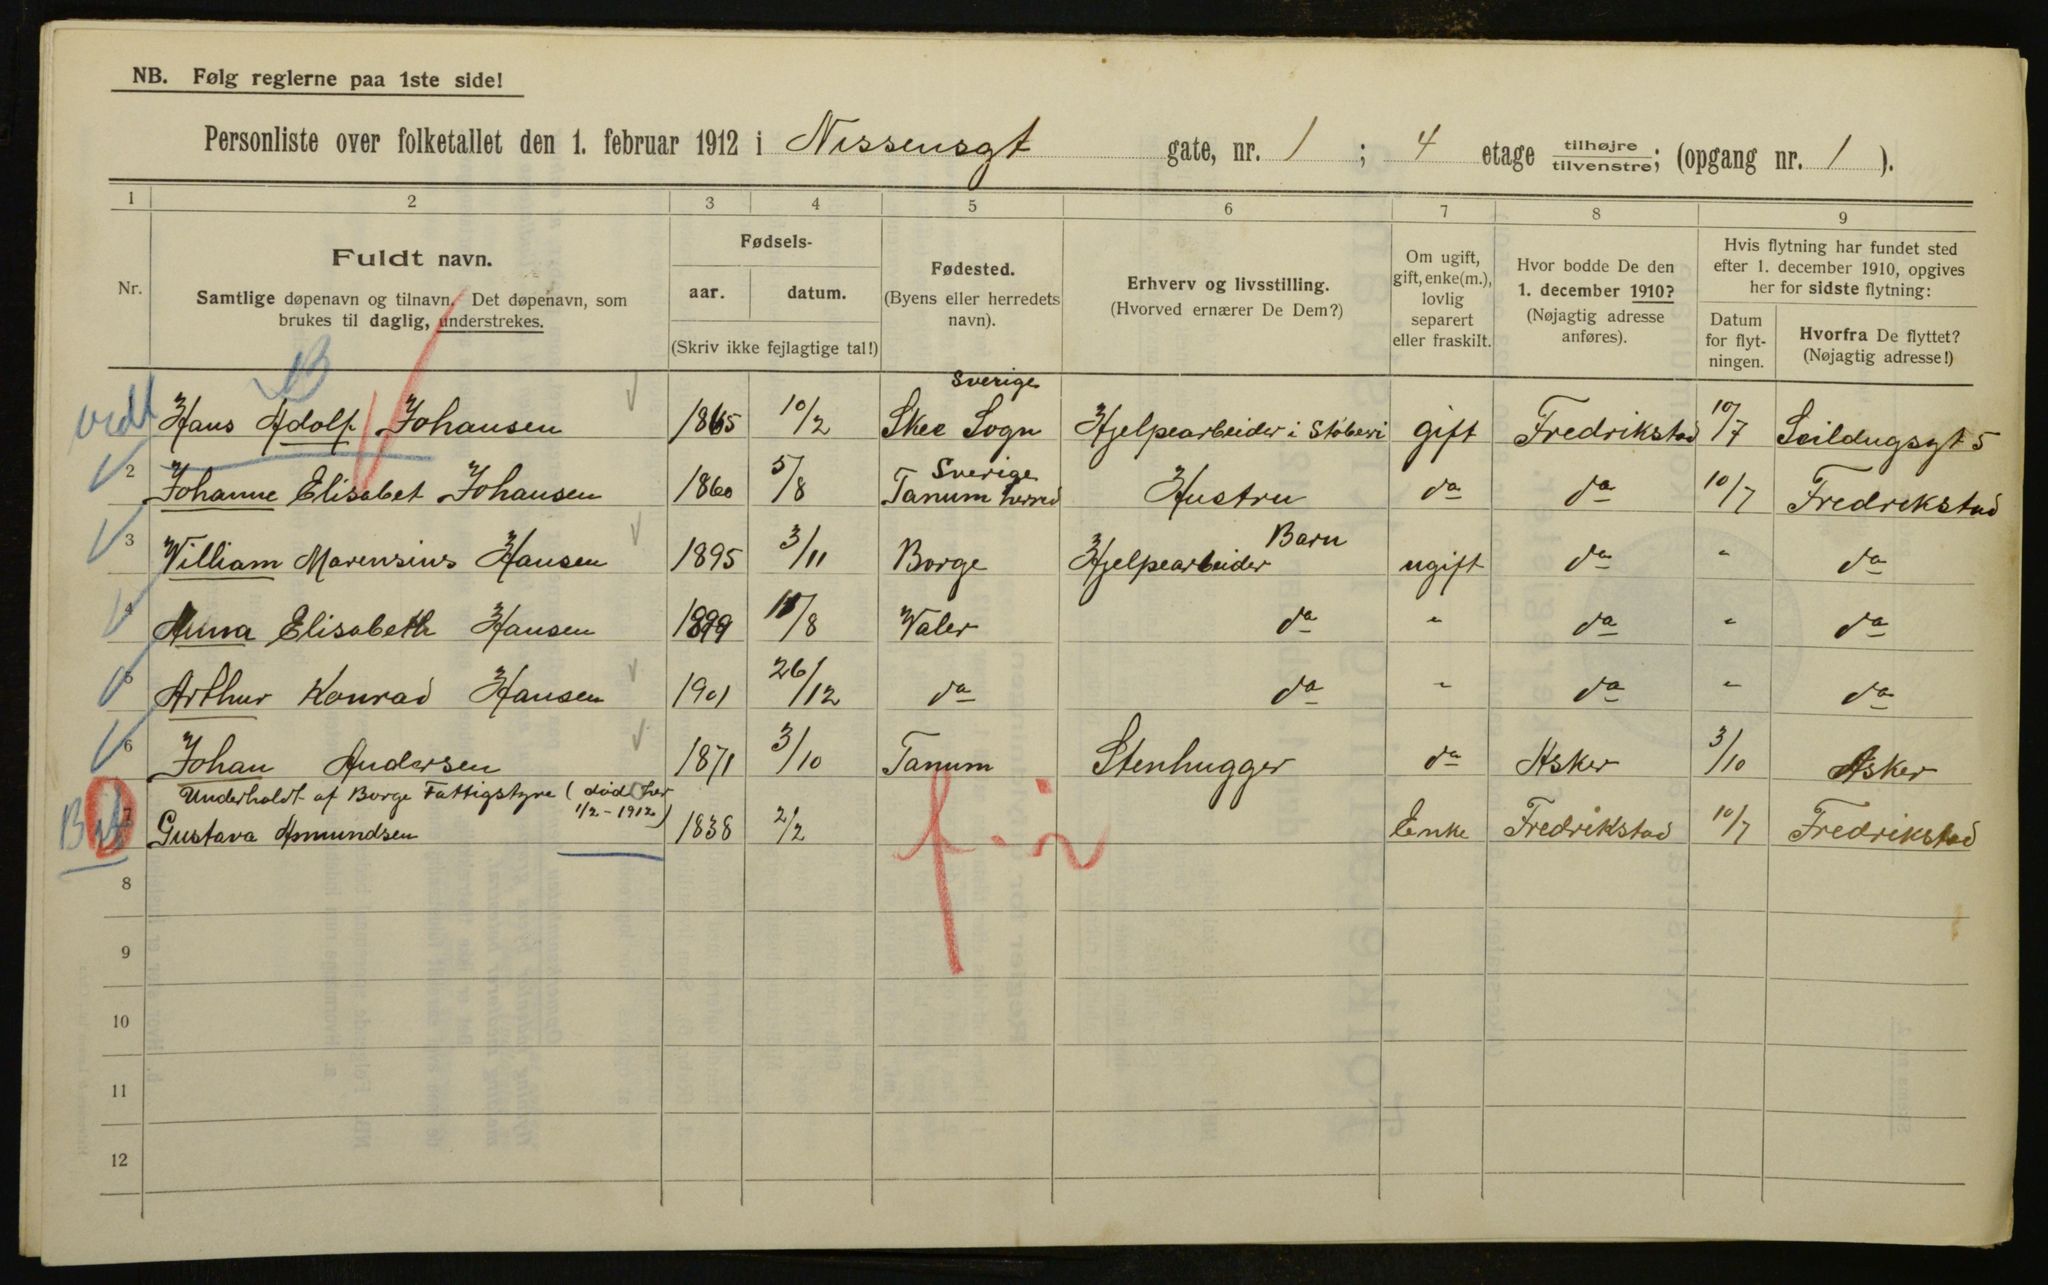 NB. Følg reglerne paa 1ste side!
Personliste over folketallet den 1. februar 1912 i Nissensgt gate, nr. 1 ; 4 etage tilhøjre tilvenstre; (opgang nr. 1 ).
1 2 3 4 5 6 7 8 9
Nr.
Fuldt navn.
Samtlige døpenavn og tilnavn. Det døpenavn, som
brukes til daglig, understrekes.
Fødsels-
aar. datum.
(Skriv ikke fejlagtige tal!)
Fødested.
(Byens eller herredets
navn).
Erhverv og livsstilling.
(Hvorved ernærer De Dem?)
Om ugift,
gift, enke(m.),
lovlig
separert
eller fraskilt.
Hvor bodde De den
1. december 1910?
(Nøjagtig adresse
anføres).
Hvis flytning har fundet sted
efter 1. december 1910, opgives
her for sidste flytning:
Datum
for flyt-
ningen.
Hvorfra De flyttet?
(Nøjagtig adresse!)
B
Sverige
Hans Adolf Johansen 1865 10/2 Skee Sogn Hjelpearbeider i Støberi gift Fredrikstad 10/7 Seildugsgt 5
Sverige
2 Johanne Elisabet Johansen 1860 5/8 Tanum herred Hustru da da 10/7 Fredrikstad
Barn
3 William Marensius Hansen 1895 3/11 Borge Hjelpearbeider ugift da " da
4 Anna Elisabeth Hansen 1899 /8 Valer da " da " da
5 Arthur Konrad Hansen 1901 26/12 da da " da " da
6 Johan Andersen 1871 3/10 Tanum Stenhugger da Asker 3/10 Asker
Underholdt af Borge Fattigstyre (død her
1/2-1912)
7 Gustava Asmundsen 1838 2/2 Enke Fredrikstad 10/7 Fredrikstad
8
9
10
11
12